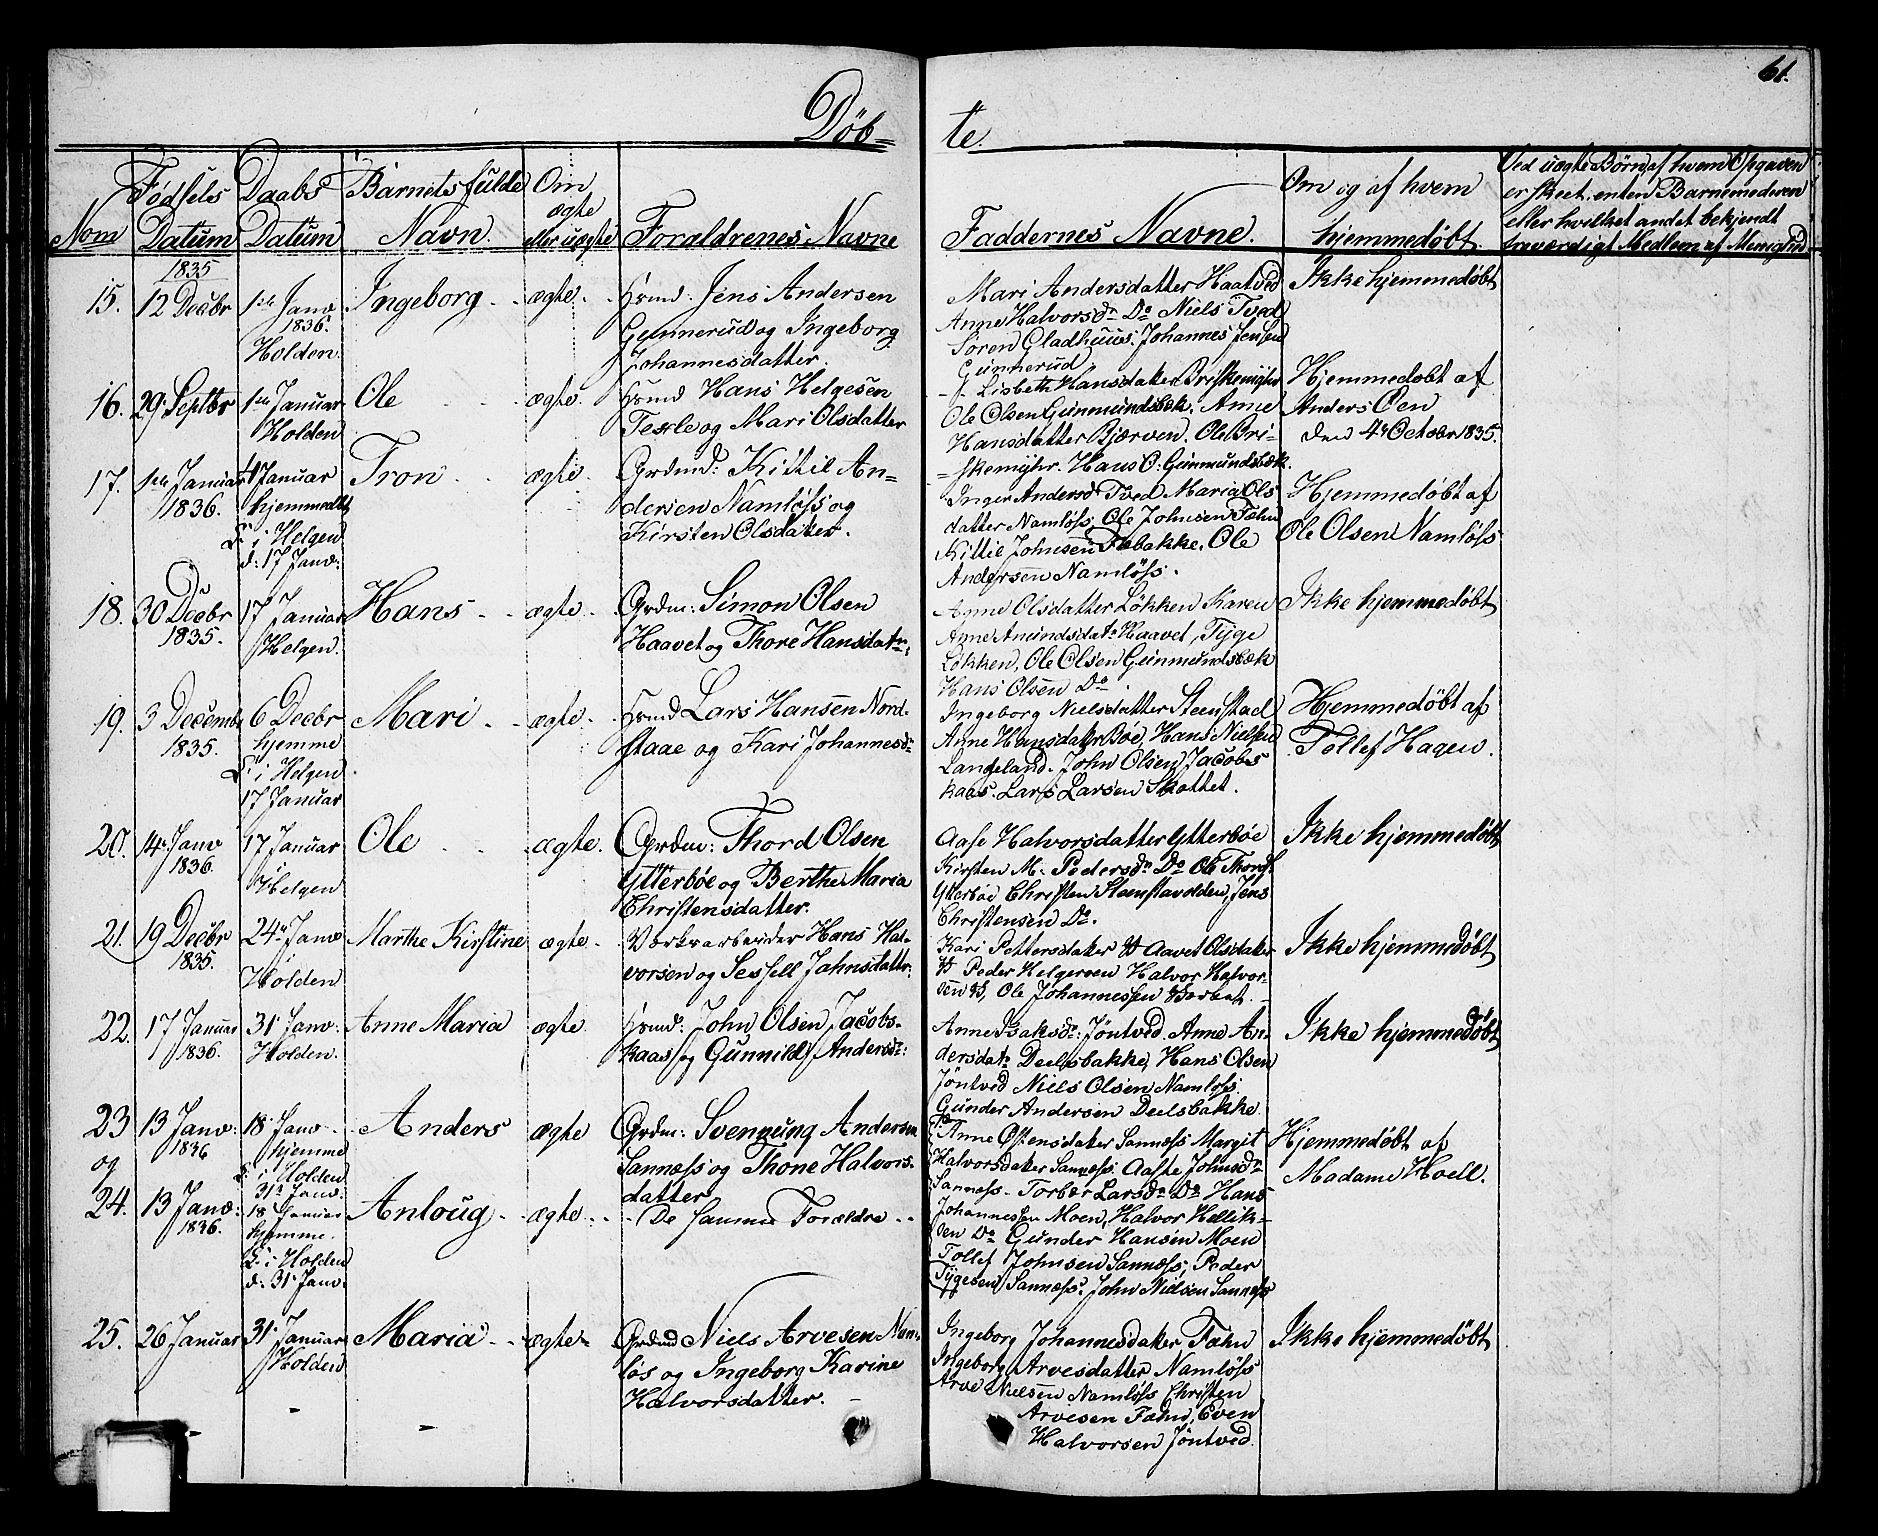 61.
Døb=
te.
Nom
Fødsels Datum
Daabs Datum
Barnets fulde Navn.
Om ægte eller uægte
Forældrenes Navne
Faddernes Navne.
Om og af hvem hjemmedøbt
Ved uægte Børn af hvem Opgaven
er skeet, enten Barnemoderen
eller hvilket andet bekjendt
troværdigt Medlem af Menighed
1835
15. 12 Decbr
1ste Janv 1836. Holden
Ingeborg
ægte
Hsmd. Jens Andersen
Gunnerud og Ingeborg
Johannesdatter.
Mari Andersdatter Haatved
Anne Halvorsdr Do Niels Tved
Søren Gladhuus. Johannes Jensen
Gunnerud
Ikke hjemmedøbt
16. 29 Septbr
1ste Januar Holden
Ole
ægte.
Hsmd Hans Helgesen
Tesle og Mari Olsdatter
Lisbeth Hansdatter Briskemyhr
Ole Olsen Gunmundsbæk. Anne
Hansdatter Bjærven. Ole Bri=
=skemyhr. Hans O: Gunmundsbæk.
Hjemmedøbt af
Anders Øen
den 4de October 1835.
17. 1ste Januar 1836.
4 Januar
hjemmedbt
i Helgen
d: 17 Janv:
Tron
ægte
Grdmd: Kittil An=
dersen Namløss og
Kirsten Olsdatter.
Inger Andersdr Tved Maria Ols
datter Namløss, Ole Johnsen Fæhn
Kittil Johnsen Febakke, Ole
Andersen Namløss.
Hjemmedøbt af
Ole Olsen Namløss
18. 30 Decbr 1835.
17 Januar
Helgen.
Hans
ægte
Grdm: Simon Olsen
Haavet og Thore Hansdatr.
Anne Olsdatter Løkken Karen
Anne Amundsdatr Haavet, Tyge
Løkken, Ole Olsen Gunmundsbæk
Hans Olsen Do.
Ikke hjemmedøbt
19. 3 Decemb 1835.
6 Decbr
hjemme
i Helgen
17 Januar
Mari
ægte
Hsmd Lars Hansen Nord-
staae og Kari Johannesdr
Ingeborg Nielsdatter Steenstad
Anne Hansdatr Bøe, Hans Nielsen
Langeland. John Olsen Jacobs
kaas. Lars Larsen Skottet.
Hjemmedøbt af
Tollef Hagen.
20. 14 Janv 1836.
17 Januar
i
Helgen
Ole
ægte.
Grdm: Thord Olsen
Ytterbøe og Berthe Maria
Christensdatter.
Aase Halvorsdatter Ytterbøe
Kirsten M. Pedersdr Do Ole Thords
Ytterbøe Christen Steenstavolden, Jens
Christensen Do.
Ikke hjemmedøbt
21. 19 Decbr 1835.
24de Janv
Holden
Marthe Kirstine
ægte
Værksarbeider Hans Hal-
vorsen og Sessell Jahnsdattr.
Kari Pettersdatter Aavet Olsdatter
Peder Helgersen Halvor Halvor-
sen, Ole Johannessen
Ikke hjemmedøbt
22. 17 Januar 1836.
31 Janv.
Holden.
Anne Maria
ægte
Hsmd: John Olsen Jacobs-
kaas og Gunnild Andersdr:
Anne Isaksdr: Jøntved. Anne An-
dersdatr Deelsbakke, Hans Olsen
Jøntved Niels Olsen Namløss.
Gunder Andersen Deelsbakke.
Ikke hjemmedøbt
23 13 Janv: 1836
og
18 Janv
hjemme
i Holden
31 Janv:
Anders
ægte
Grdm: Svennung Andersen
Sannæss og Thone Halvors-
datter
Anne Østensdatter Sannæss Margit
Halvorsdatter Sannæss. Aaste Johnsdr
Sannæss - Torbær Larsdr Do Hans
Johannessen Moen, Halvor Hellik=
sen Do Gunder Hansen Moen
Tollef Johnsen Sannæss, Peder
Tygesen Sannæss. John Nielsen Sannæss
Hjemmedøbt af
Madame Hoell.
24. 13 Janv: 1836.
18 Januar
hjemme.
i Holden
d. 31 Janv.
Anloug
ægte
De samme Forældre
25. 26 Januar
31 Januar
Holden
Maria
ægte
Grdmd Niels Arvesen Nam-
løs og Ingeborg Karine
Halvorsdatter.
Ingeborg Johannesdatter Fæhn
Ingeborg Arvesdatter Namløss
Arve Nielsen Namløss Christen
Arvesen Fæhn, Even
Halvorsen Jøntved.
Ikke hjemmedøbt